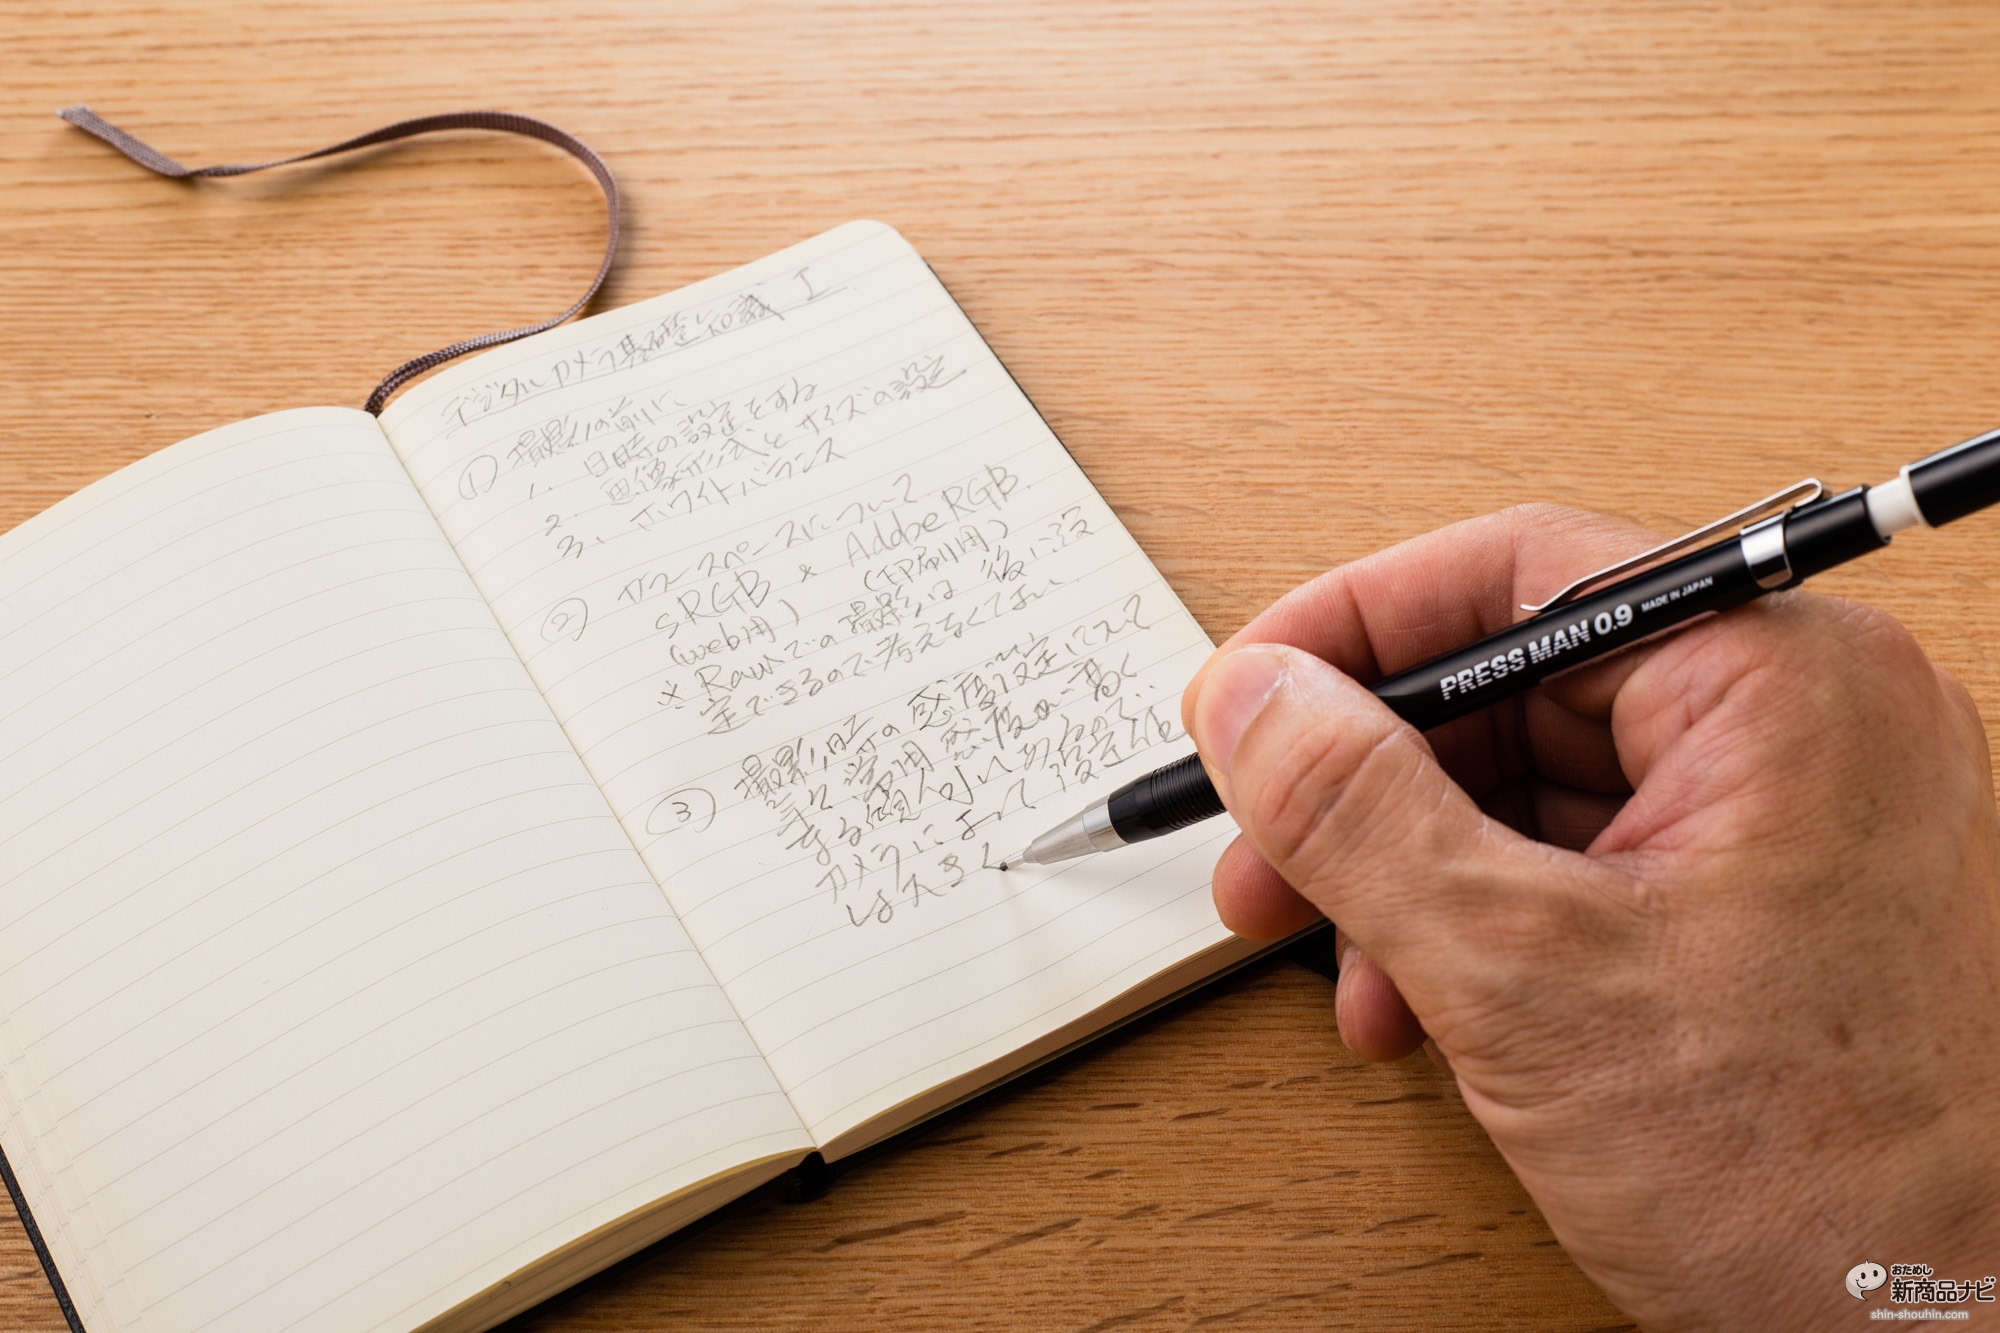 デジタルカメラ基礎知識 I
① 撮影の前に
1. 日時の設定をする
2. 画像形式とサイズの設定
3. ホワイトバランス
② カラースペースについて
sRGB × Adobe RGB
(web用) (印刷用)
※ Rawでの撮影は後に設
定できるので考えなくてよい
③ 撮影時の感度設定について
常用感度が高く
なる傾向にあるので..
カメラによって設定値
は大きく
PRESS MAN 0.9 MADE IN JAPAN
おためし
新商品ナビ
shin-shouhin.com